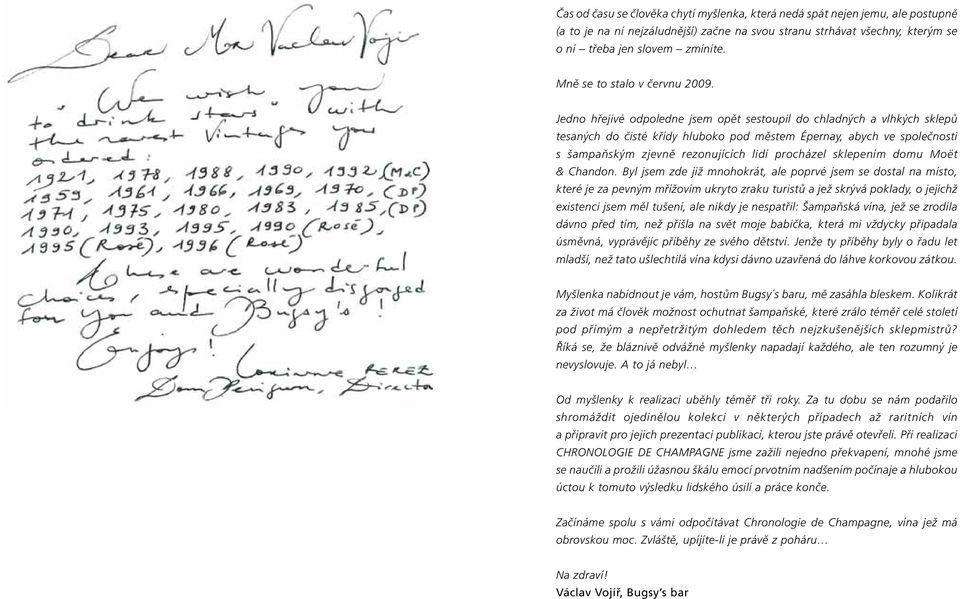 Dear Mr Vaclav Vojir
"We wish you
to "drink stars" with
the rarest Vintages you
ordered:
1921, 1978, 1988, 1990, 1992, (M&C)
1959, 1961, 1966, 1969, 1970, (DP)
1971, 1975, 1980, 1983, 1985, (DP)
1990, 1993, 1995, 1990 (Rosé),
1995 (Rosé), 1996 (Rosé)
These are wonderful
choices, especially disgorged
for you and Bugsy's!
Enjoy!
Corinne PEREZ
Dom Perignon, Director
Čas od času se člověka chytí myšlenka, která nedá spát nejen jemu, ale postupně
(a to je na ní nejzáludnější) začne na svou stranu strhávat všechny, kterým se
o ní – třeba jen slovem – zmíníte.
Mně se to stalo v červnu 2009.
Jedno hřejivé odpoledne jsem opět sestoupil do chladných a vlhkých sklepů
tesaných do čisté křídy hluboko pod městem Épernay, abych ve společnosti
s šampaňským zjevně rezonujících lidí procházel sklepením domu Moët
& Chandon. Byl jsem zde již mnohokrát, ale poprvé jsem se dostal na místo,
které je za pevným mřížovím ukryto zraku turistů a jež skrývá poklady, o jejichž
existenci jsem měl tušení, ale nikdy je nespatřil: Šampaňská vína, jež se zrodila
dávno před tím, než přišla na svět moje babička, která mi vždycky připadala
úsměvná, vyprávějíc příběhy ze svého dětství. Jenže ty příběhy byly o řadu let
mladší, než tato ušlechtilá vína kdysi dávno uzavřená do láhve korkovou zátkou.
Myšlenka nabídnout je vám, hostům Bugsy´s baru, mě zasáhla bleskem. Kolikrát
za život má člověk možnost ochutnat šampaňské, které zrálo téměř celé století
pod přímým a nepřetržitým dohledem těch nejzkušenějších sklepmistrů?
Říká se, že bláznivě odvážné myšlenky napadají každého, ale ten rozumný je
nevyslovuje. A to já nebyl…
Od myšlenky k realizaci uběhly téměř tři roky. Za tu dobu se nám podařilo
shromáždit ojedinělou kolekci v některých případech až raritních vín
a připravit pro jejich prezentaci publikaci, kterou jste právě otevřeli. Při realizaci
CHRONOLOGIE DE CHAMPAGNE jsme zažili nejedno překvapení, mnohé jsme
se naučili a prožili úžasnou škálu emocí prvotním nadšením počínaje a hlubokou
úctou k tomuto výsledku lidského úsilí a práce konče.
Začínáme spolu s vámi odpočítávat Chronologie de Champagne, vína jež má
obrovskou moc. Zvláště, upíjíte-li je právě z poháru…
Na zdraví!
Václav Vojíř, Bugsy's bar